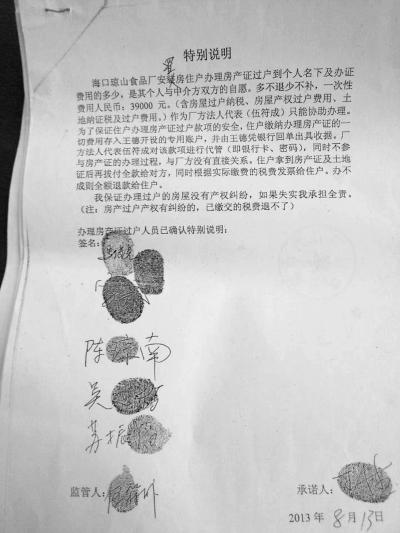 特别说明
置
海口琼山食品厂安房住户办理房产证过户到个人名下及办证
费用的多少，是其个人与中介方双方的自愿。多不退少不补，一次性
费用人民币：39000 元。（含房屋过户纳税、房屋产权过户费用、土
地纳证税及过户费用。）作为厂方法人代表（伍符成）只能协助办理。
为了保证住户办理房产证过户款项的安全，住户缴纳办理房产证的一
切费用存入王德开设的专用账户，并由王德凭银行回单出具收据。厂
方法人代表伍符成对该款项进行代管（即银行卡、密码），同时不参
与房产证的办理过程，与厂方没有直接关系。住户拿到房产证及土地
证后再拔付全款给对方，同时根据实际缴费的税费发票给住户。办不
成则全额退款给住户。
我保证办理过户的房屋没有产权纠纷，如果失实我承担全责。
（注：房产过户产权有纠纷的，已缴交的税费退不了）
办理房产证过户人员已确认特别说明：
签名：
陈 南
吴
苏振
监管人：
承诺人：
2013 年 8月13日